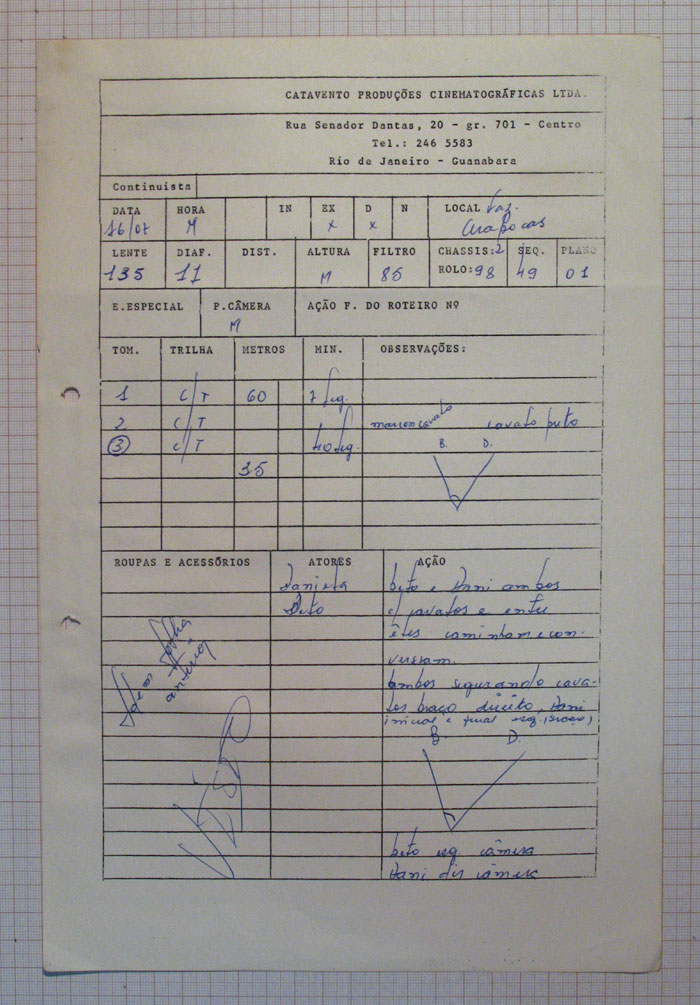 CATAVENTO PRODUÇÕES CINEMATOGRÁFICAS LTDA.
Rua Senador Dantas, 20 - gr. 701 - Centro
Tel.: 246 5583
Rio de Janeiro - Guanabara
Continuista
DATA HORA IN EX D N LOCAL faz.
16/07 M x x
LENTE DIAF. DIST. ALTURA FILTRO CHASSIS:2 SEQ. PLANO
135 11 M 85 ROLO:98 49 01
E.ESPECIAL P.CÂMERA AÇÃO F. DO ROTEIRO Nº
M
TOM. TRILHA METROS MIN. OBSERVAÇÕES:
1 C/T 60 7 seg.
2 C/T marron cavalo cavalo preto
3 C/T 40 seg. B. D.
35
ROUPAS E ACESSÓRIOS ATORES AÇÃO
Daniela beto e Dani ambos
Beto c/ cavalos e entre
êles caminham e con-
versam.
Idem folha
anterior
ambos segurando cava-
los braço direito, Dani
inicial e final esq.
B. D.
beto esq. câmera
Dani dir câmera